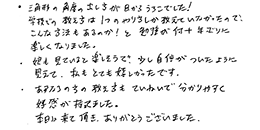 ・三角形の角度の出し方が分かるようになりました!
学校での教え方は1つのやり方しか教えていなかったので、
こんな方法もあるのか!と勉強が何十年ぶりに
楽しくなりました。
・娘も見ていると楽しそうで、少し自信がついたように
見えて、私もとても嬉しかったです。
・あすなろの方の教え方もていねいで分かりやすく
好感が持てました。
本日は来て頂き、ありがとうございました。